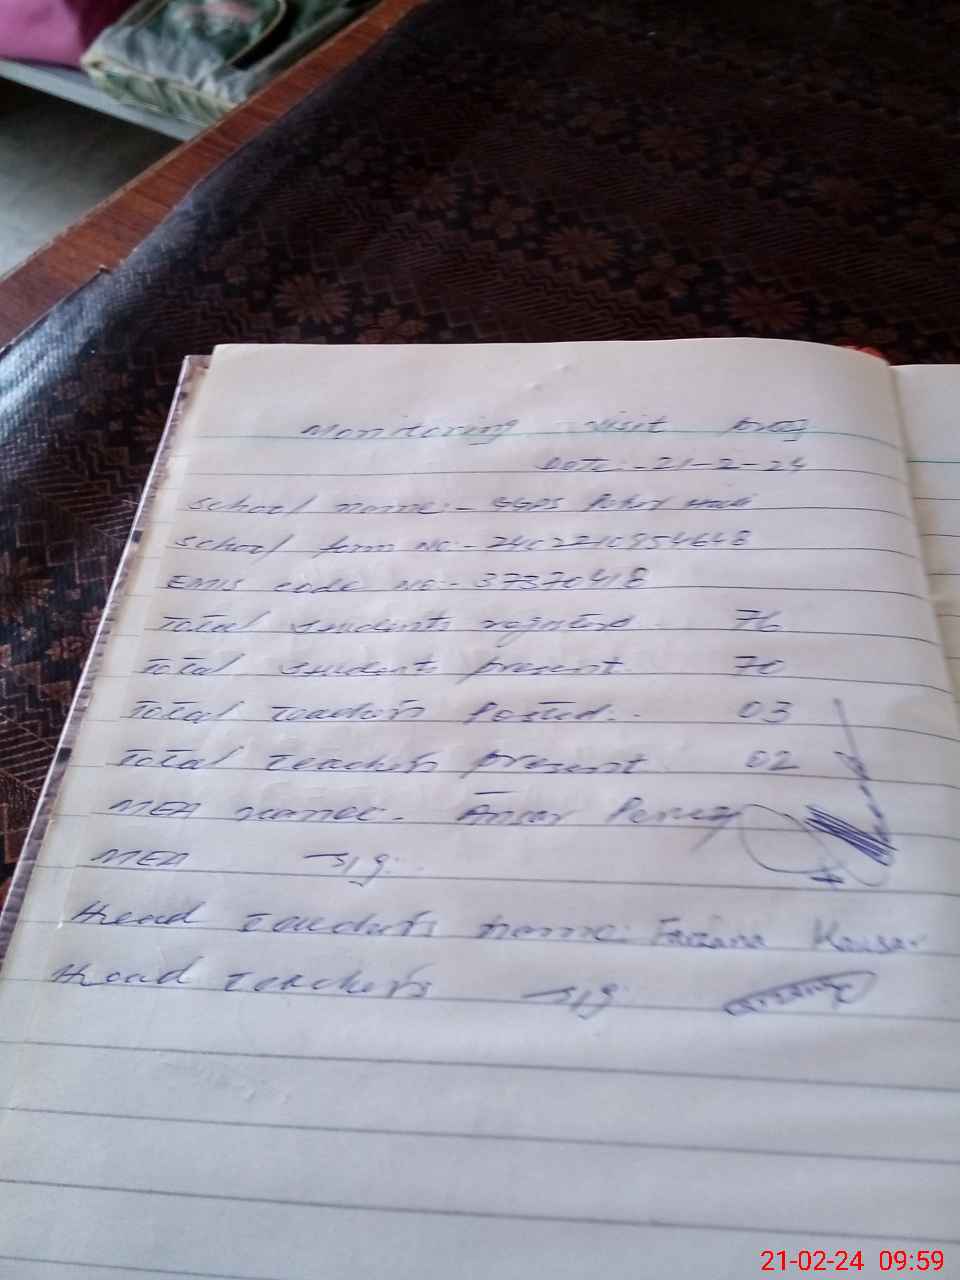 Monitoring visit proof
Date:- 21-2-24
School name:- GGPS
School form No:- 2402210954648
EMIS code No:- 37370418
Total students registered 76
Total student present 70
Total teacher's Posted:. 03
Total teacher's present 02
MEA name. Ansar Pervez
MEA sig:
Head teacher's name: Faizana Kausar
Head teacher's sig:
21-02-24 09:59